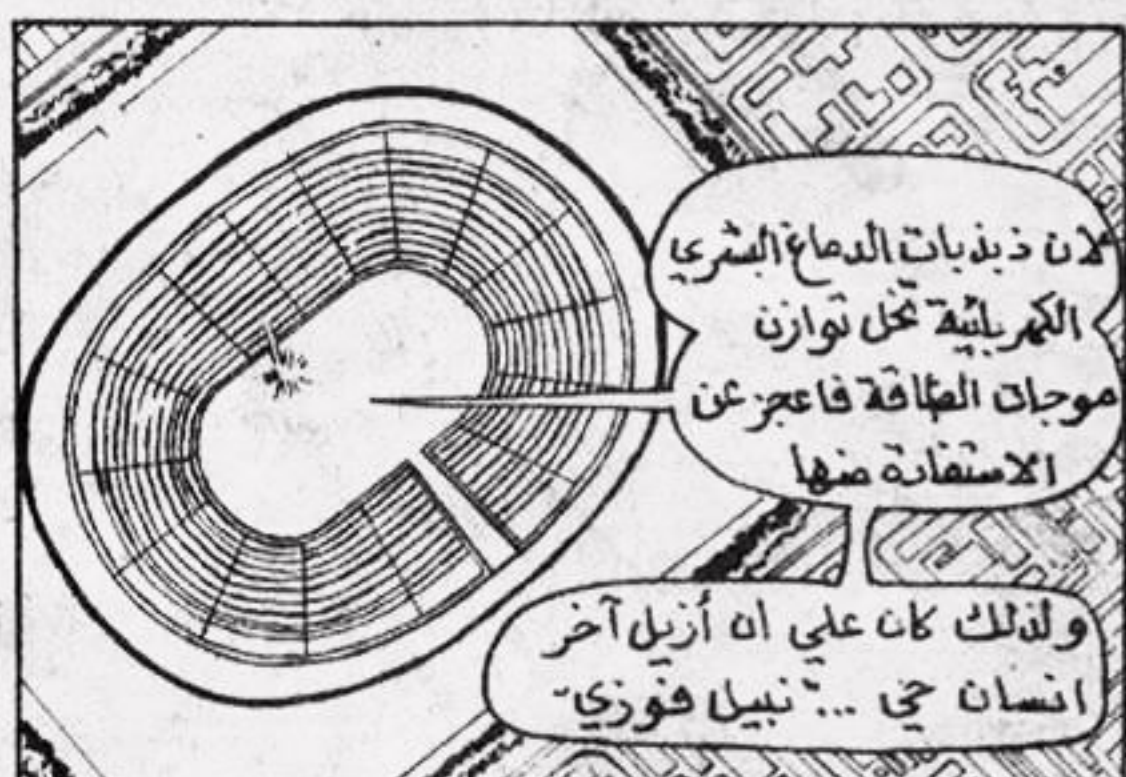 لان ذبذبات الدماغ البشري
الكهربائية تخل توازن
موجات الطاقة فاعجز عن
الاستفادة منها
ولذلك كان علي ان أزيل آخر
انسان حي ... "نبيل فوزي"